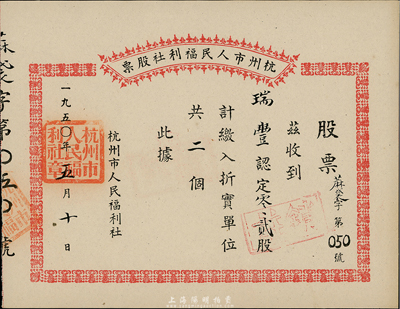 杭州市人民福利社股票
股票
蔴袋字第050號
茲收到
瑞豐認定零貳股
計繳入折實單位
共二個
此據
杭州市人民福利社
一九五〇年五月十日
杭州市人民福利社章
蔴袋字第〇五〇號
上海陽明拍賣